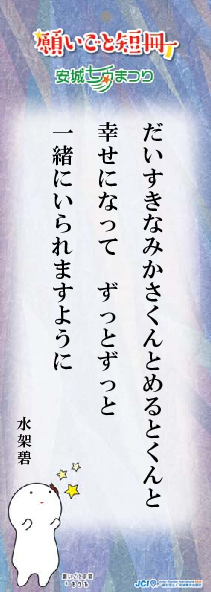 願いごと短冊
安城七夕まつり
だいすきなみかさくんとめるとくんと
幸せになって ずっとずっと
一緒にいられますように
水架碧
JCI